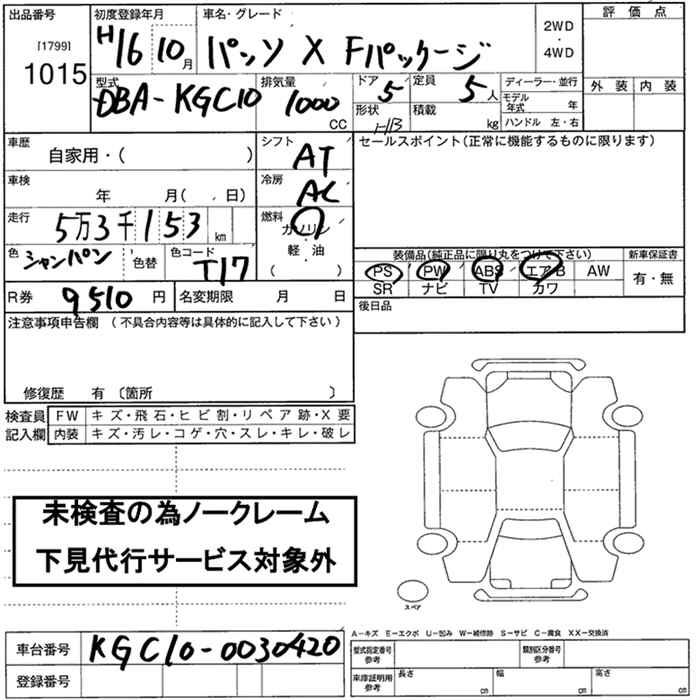 出品番号 初度登録年月 車名・グレード 2WD ・ 4WD 評価点
[1799] 1015 H16 10月 パッソ X Fパッケージ
外装 内装
型式 排気量 ドア 定員 ディーラー・並行
DBA-KGC10 1000 CC 5 5人 モデル年式 年
形状 積載 kg ハンドル 左・右
車歴 自家用・( ) シフト AT セールスポイント(正常に機能するものに限ります)
車検 年 月( 日) 冷房 AC
走行 5万3千153 km 燃料 ガソリン
軽・油
( )
色 シャンパン 色替 色コード T17 装備品(純正品に限り丸をつけて下さい) 新車保証書
PS PW ABS エアB AW 有・無
SR ナビ TV カワ
R券 9510円 名変期限 月 日 後日品
注意事項申告欄 (不具合内容等は具体的に記入して下さい)
修復歴 有 〔箇所 〕
検査員 FW キズ・飛石・ヒビ割・リペア跡・X要
記入欄 内装 キズ・汚レ・コゲ・穴・スレ・キレ・破レ
未検査の為ノークレーム
下見代行サービス対象外
スペア
A-キズ E-エクボ U-凹み W-補修跡 S-サビ C-腐食 XX-交換済
車台番号 KGC10-0030420 型式指定番号 参考 類別区分番号 参考
登録番号 車庫証明用 参考 長さ cm 幅 cm 高さ cm